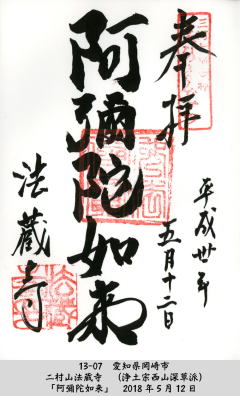 奉拝
平成卅年
五月十二日
阿彌陀如来
法蔵寺
13-07 愛知県岡崎市
二村山法蔵寺 （浄土宗西山深草派）
「阿彌陀如来」 2018年5月12日